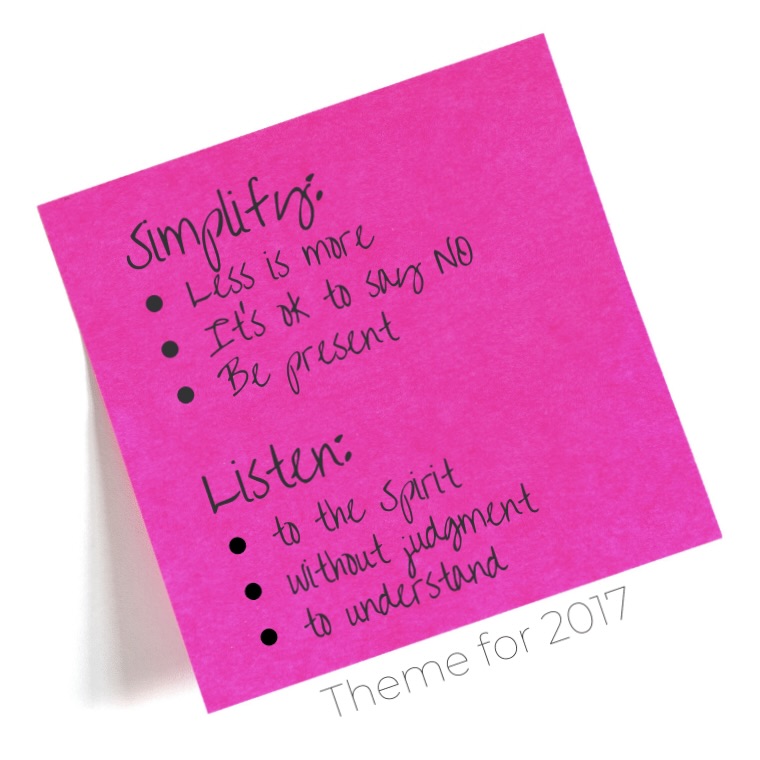 Simplify:
• Less is more
• It's ok to say NO
• Be present
Listen:
• to the Spirit
• without judgment
• to understand
Theme for 2017